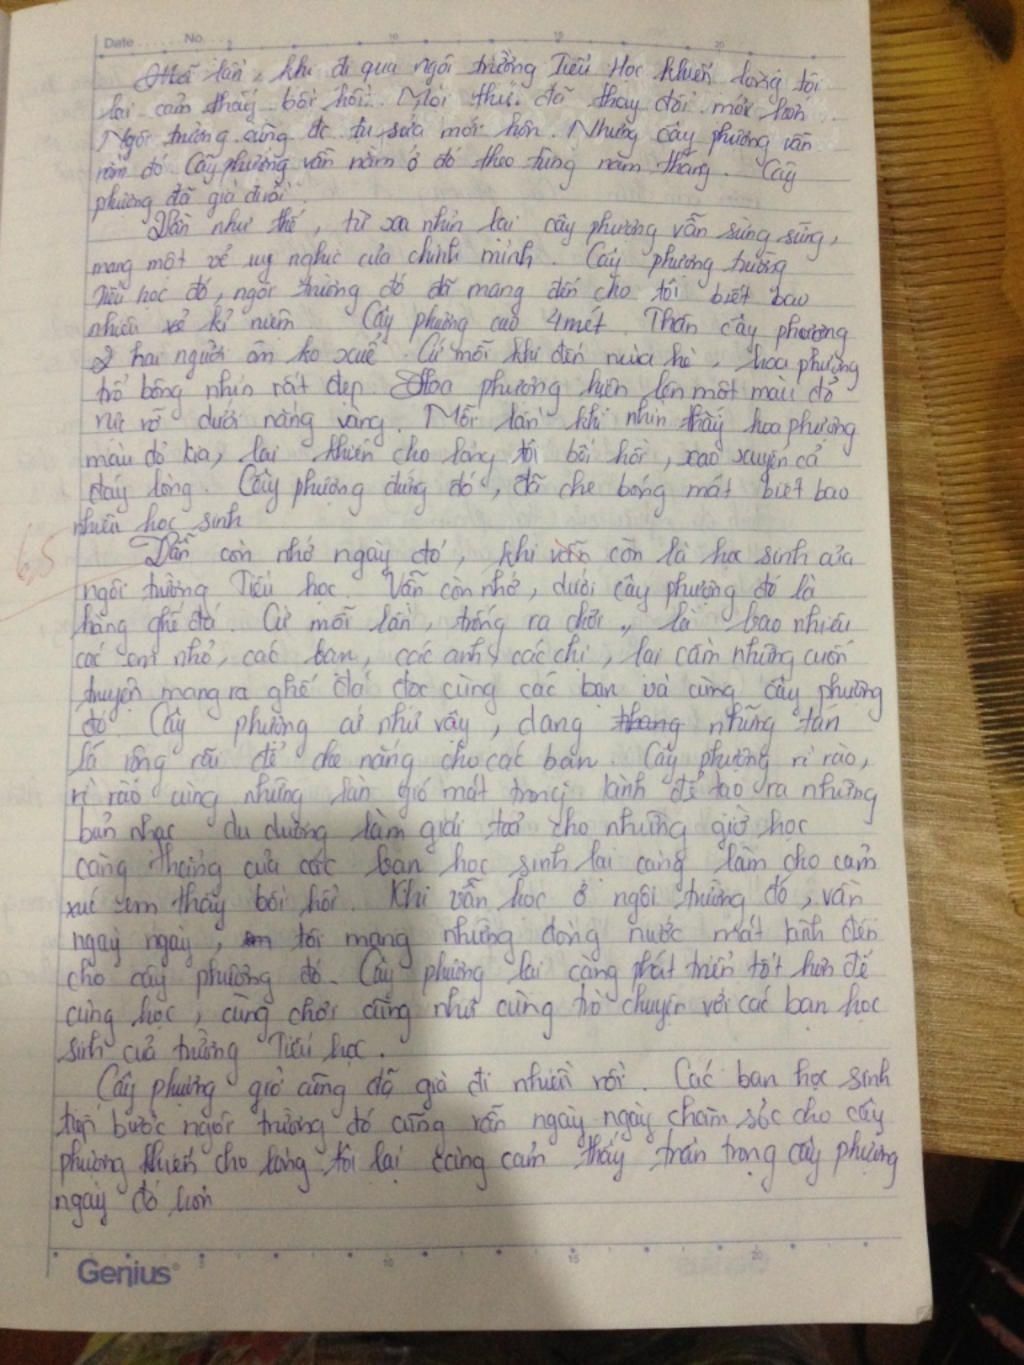 Date ...... No.
Mỗi lần, khi đi qua ngôi trường Tiểu Học khiến lòng tôi
lại cảm thấy bồi hồi. Mọi thứ đã thay đổi mới hơn.
Ngôi trường cũng đc tu sửa mới hơn. Nhưng cây phượng vẫn
nằm đó. Cây phượng vẫn nằm ở đó theo từng năm tháng. Cây
phượng đã già đi rồi.
Vẫn như thế, từ xa nhìn lại cây phượng vẫn sừng sững,
mang một vẻ uy nghiê của chính mình. Cây phượng trường
Tiểu học đó, ngôi trường đó đã mang đến cho tôi biết bao
nhiêu kỉ niệm. Cây phượng cao 4 mét. Thân cây phượng
hai người ôm ko xuể. Cứ mỗi khi đến mùa hè, hoa phượng
trổ bông nhìn rất đẹp. Hoa phượng hiện lên một màu đỏ
rực rỡ dưới nắng vàng. Mỗi lần khi nhìn thấy hoa phượng
màu đỏ kia, lại khiến cho lòng tôi bồi hồi, xao xuyến cả
đáy lòng. Cây phượng đứng đó, đã che bóng mát biết bao
nhiêu học sinh
6,5
Vẫn còn nhớ ngày đó, khi vẫn còn là học sinh của
ngôi trường Tiểu học. Vẫn còn nhớ, dưới cây phượng đó là
hàng ghế đá. Cứ mỗi lần, trống ra chơi, là bao nhiêu
các em nhỏ, các bạn, các anh, các chị, lại cầm những cuốn
truyện mang ra ghế đá đọc cùng các bạn và cùng cây phượng
đó. Cây phượng cứ như vậy, dang những tán
lá rộng rãi để che nắng cho các bạn. Cây phượng rì rào,
rì rào cùng những làn gió mát trong lành để tạo ra những
bản nhạc du dương làm giải toả cho những giờ học
căng thẳng của các bạn học sinh lại càng làm cho cảm
xúc em thấy bồi hồi. Khi vẫn học ở ngôi trường đó, vẫn
ngày ngày, tôi mang những dòng nước mát lành đến
cho cây phượng đó. Cây phượng lại càng phát triển tốt hơn để
cùng học, cùng chơi cũng như cùng trò chuyện với các bạn học
sinh của trường Tiểu học.
Cây phượng giờ cũng đã già đi nhiều rồi. Các bạn học sinh
tiếp bước ngôi trường đó cũng vẫn ngày ngày chăm sóc cho cây
phượng khiến cho lòng tôi lại càng cảm thấy trân trọng cây phượng
ngày đó hơn
Genius